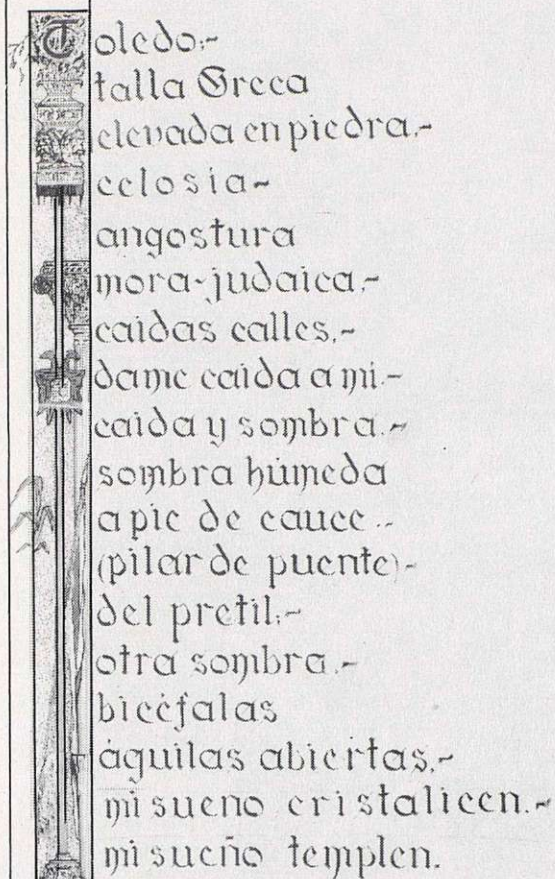 Toledo.-
talla Greca
elevada en piedra.-
celosia-
angostura
mora-judaica.-
caidas calles.-
dame caida a mi.-
caida y sombra.-
sombra húmeda
a pie de cauce..
(pilar de puente)-
del pretil.-
otra sombra.-
bicéfalas
águilas abiertas.-
mi sueno cristalicen.-
mi sueño templen.